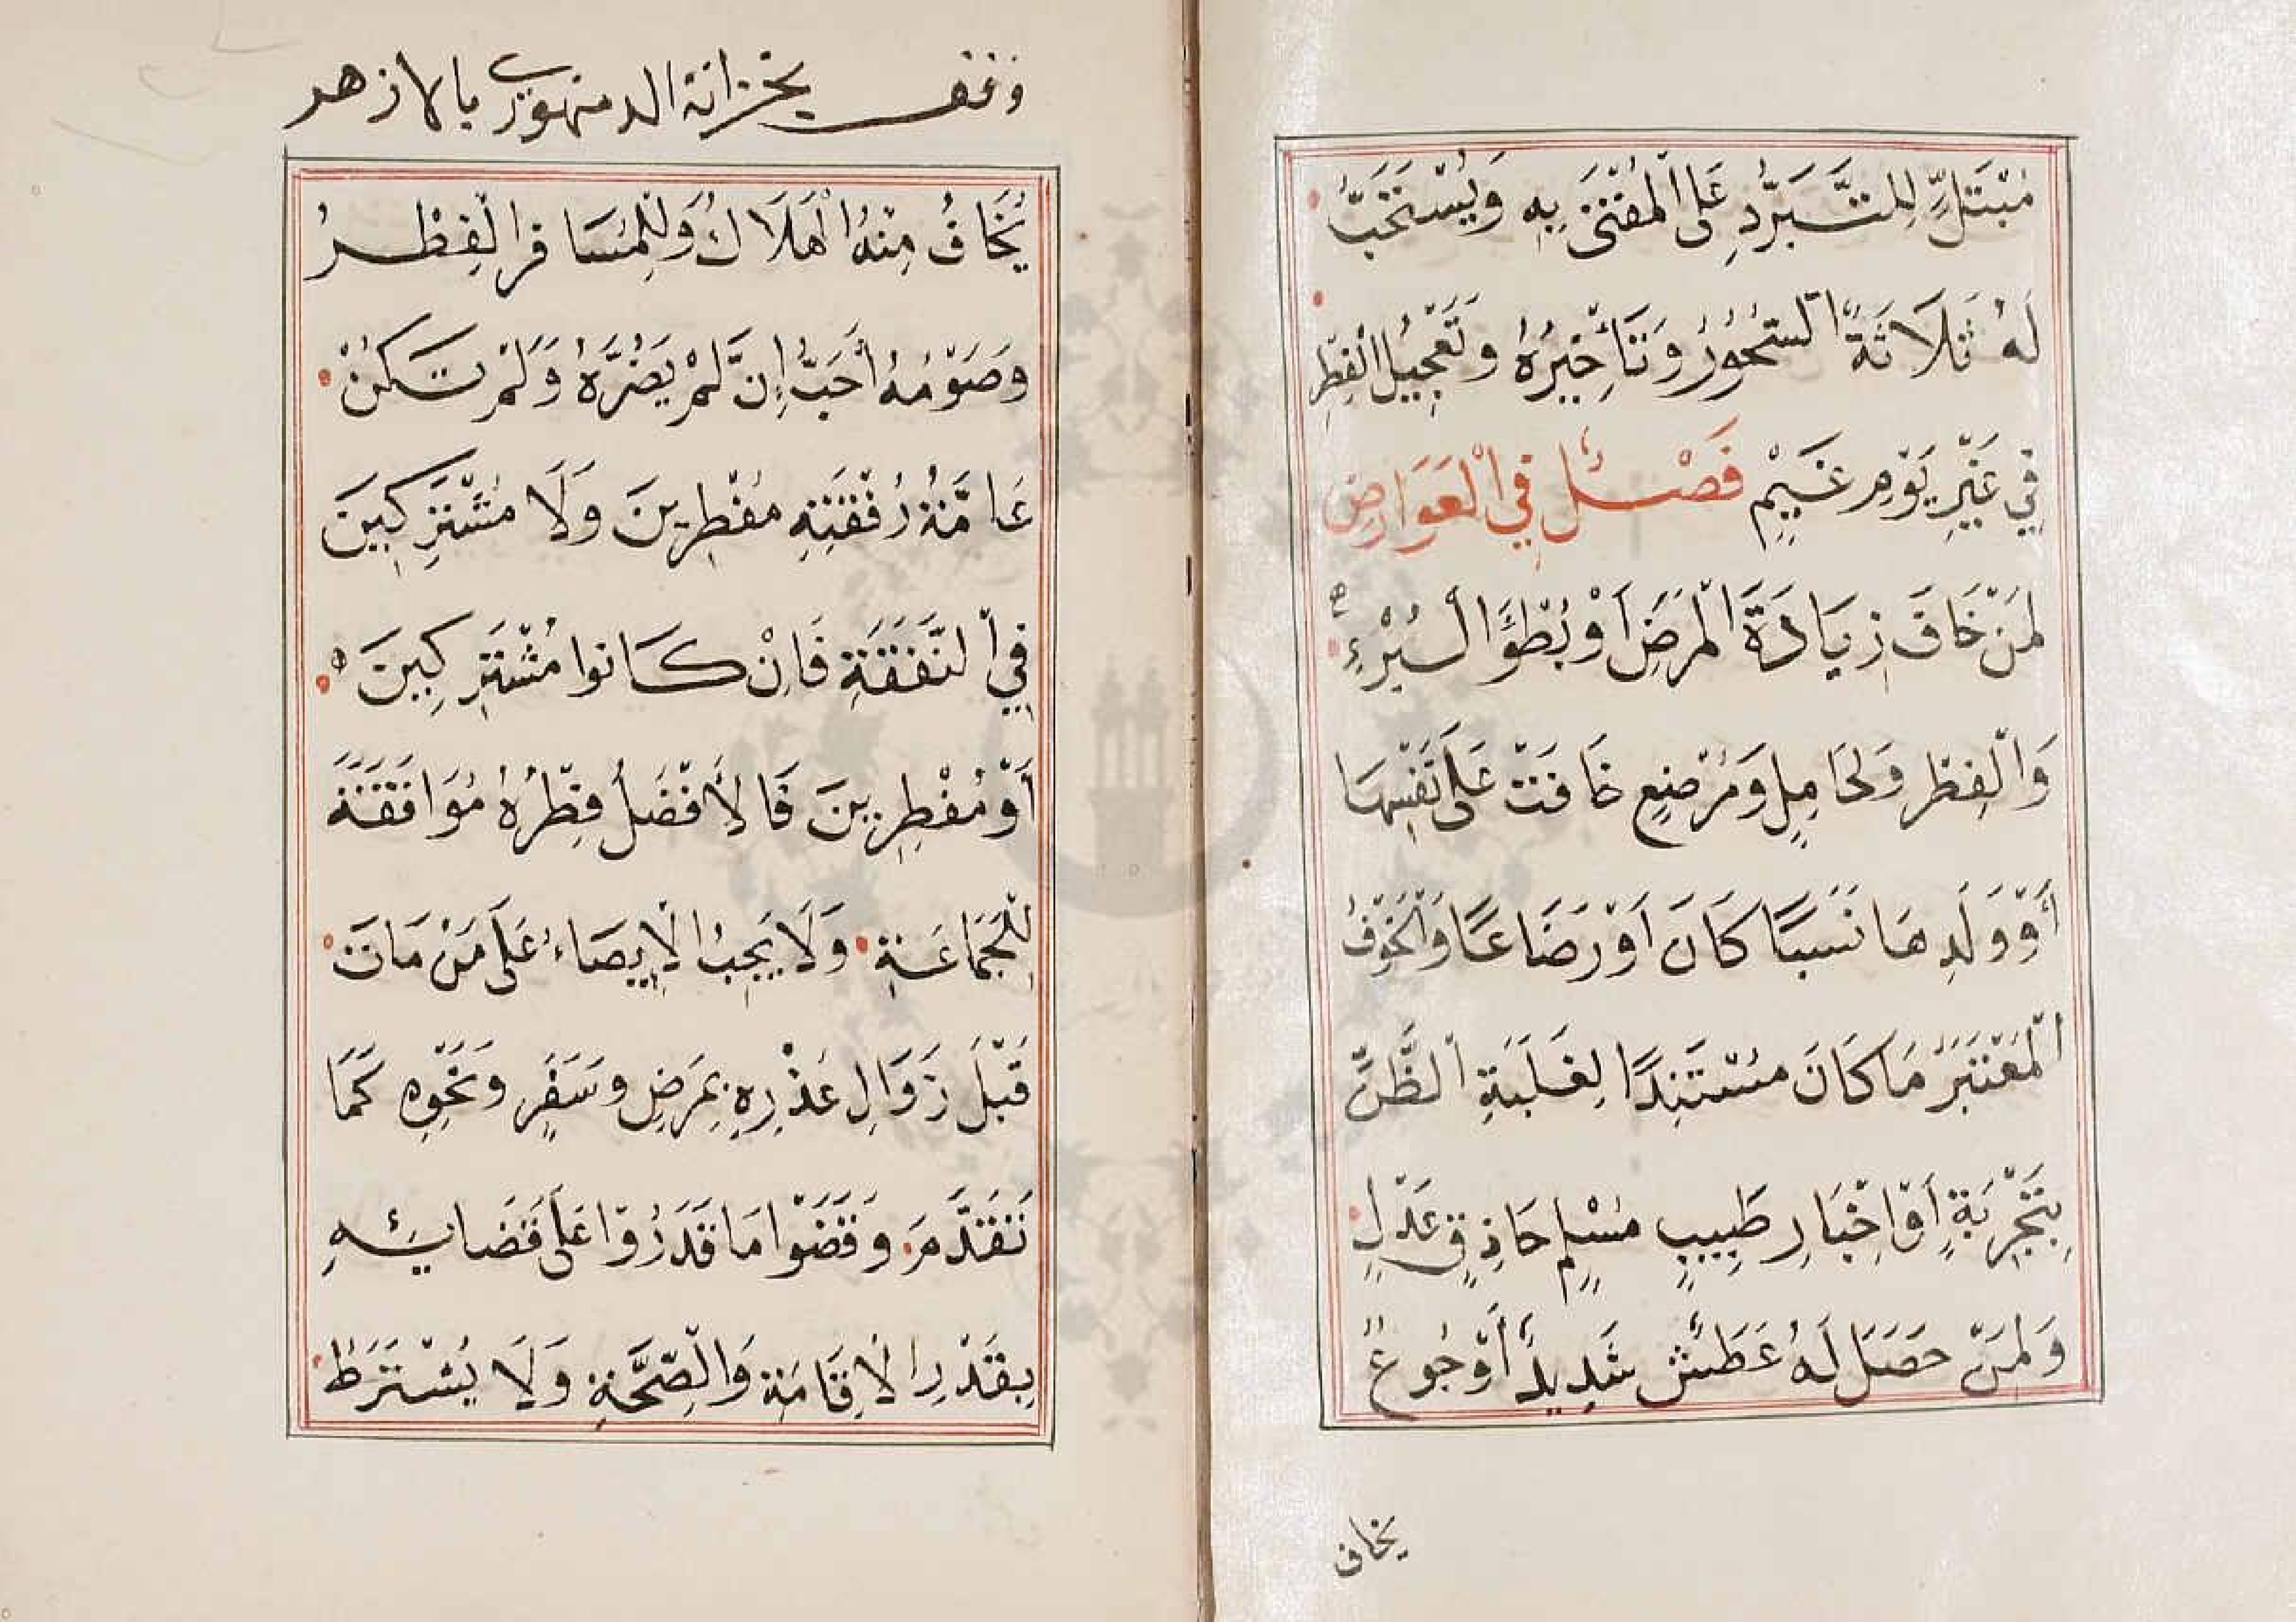 مُبْتَلٍّ لِلتَّبَرُّدِ عَلَى الْمُفْتَى بِهِ وَيُسْتَحَبُّ
لَهُ ثَلَاثَةٌ السَّحُورُ وَتَأْخِيرُهُ وَتَعْجِيلُ الْفِطْرِ
فِي غَيْرِ يَوْمِ غَيْمٍ فَصْلٌ فِي الْعَوَارِضِ
لِمَنْ خَافَ زِيَادَةَ الْمَرَضِ أَوْ بُطْؤَ الْبُرْءِ
وَالْفِطْرِ وَلِحَامِلٍ وَمُرْضِعٍ خَافَتْ عَلَى نَفْسِهَا
أَوْ وَلَدِهَا نَسَبًا كَانَ أَوْ رَضَاعًا وَالْخَوْفُ
الْمُعْتَبَرُ مَا كَانَ مُسْتَنِدًا لِغَلَبَةِ الظَّنِّ
بِتَجْرِبَةٍ أَوْ إِخْبَارِ طَبِيبٍ مُسْلِمٍ حَاذِقٍ عَدْلٍ
وَلِمَنْ حَصَلَ لَهُ عَطَشٌ شَدِيدٌ أَوْ جُوعٌ
يخاف
وقف بخزانة الدمنهوري بالازهر
يُخَافُ مِنْهُ الْهَلَاكُ وَلِلْمُسَافِرِ الْفِطْرُ
وَصَوْمُهُ أَحَبُّ إِنْ لَمْ يَضُرَّهُ وَلَمْ تَكُنْ
عَامَّةُ رُفْقَتِهِ مُفْطِرِينَ وَلَا مُشْتَرِكِينَ
فِي النَّفَقَةِ فَإِنْ كَانُوا مُشْتَرِكِينَ
أَوْ مُفْطِرِينَ فَالْأَفْضَلُ فِطْرُهُ مُوَافَقَةً
لِلْجَمَاعَةِ وَلَا يَجِبُ الْإِيصَاءُ عَلَى مَنْ مَاتَ
قَبْلَ زَوَالِ عُذْرِهِ بِمَرَضٍ وَسَفَرٍ وَنَحْوِهِ كَمَا
تَقَدَّمَ وَقَضَوْا مَا قَدَرُوا عَلَى قَضَائِهِ
بِقَدْرِ الْإِقَامَةِ وَالصِّحَّةِ وَلَا يُشْتَرَطُ